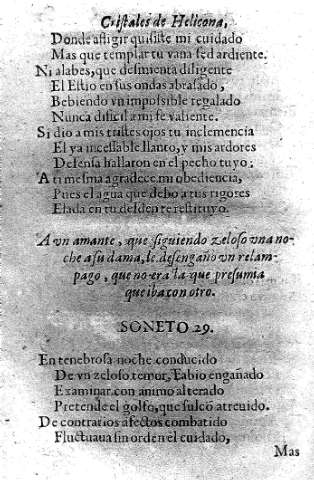 Cristales de Helicona,
Donde afligir quisiste mi cuidado
Mas que templar tu vana sed ardiente.
Ni alabes, que desmienta diligente
El Estio en sus ondas abrasado,
Bebiendo vn impossible regalado
Nunca dificil a mi fe valiente.
Si dio a mis tristes ojos tu inclemencia
El ya incessable llanto, y mis ardores
Defensa hallaron en el pecho tuyo:
A ti mesma agradece mi obediencia,
Pues el agua que debo a tus rigores
Elada en tu desden te restituyo.
A vn amante, que siguiendo zeloso vna no-
che a su dama, le desengaño vn relam-
pago, que no era la que presumia
que iba con otro.
SONETO 29.
En tenebrosa noche conducido
De vn zeloso temor, Fabio engañado
Examinar con animo alterado
Pretende el golfo, que sulcò atreuido.
De contrarios afectos combatido
Fluctuaua sin orden el cuidado,
Mas